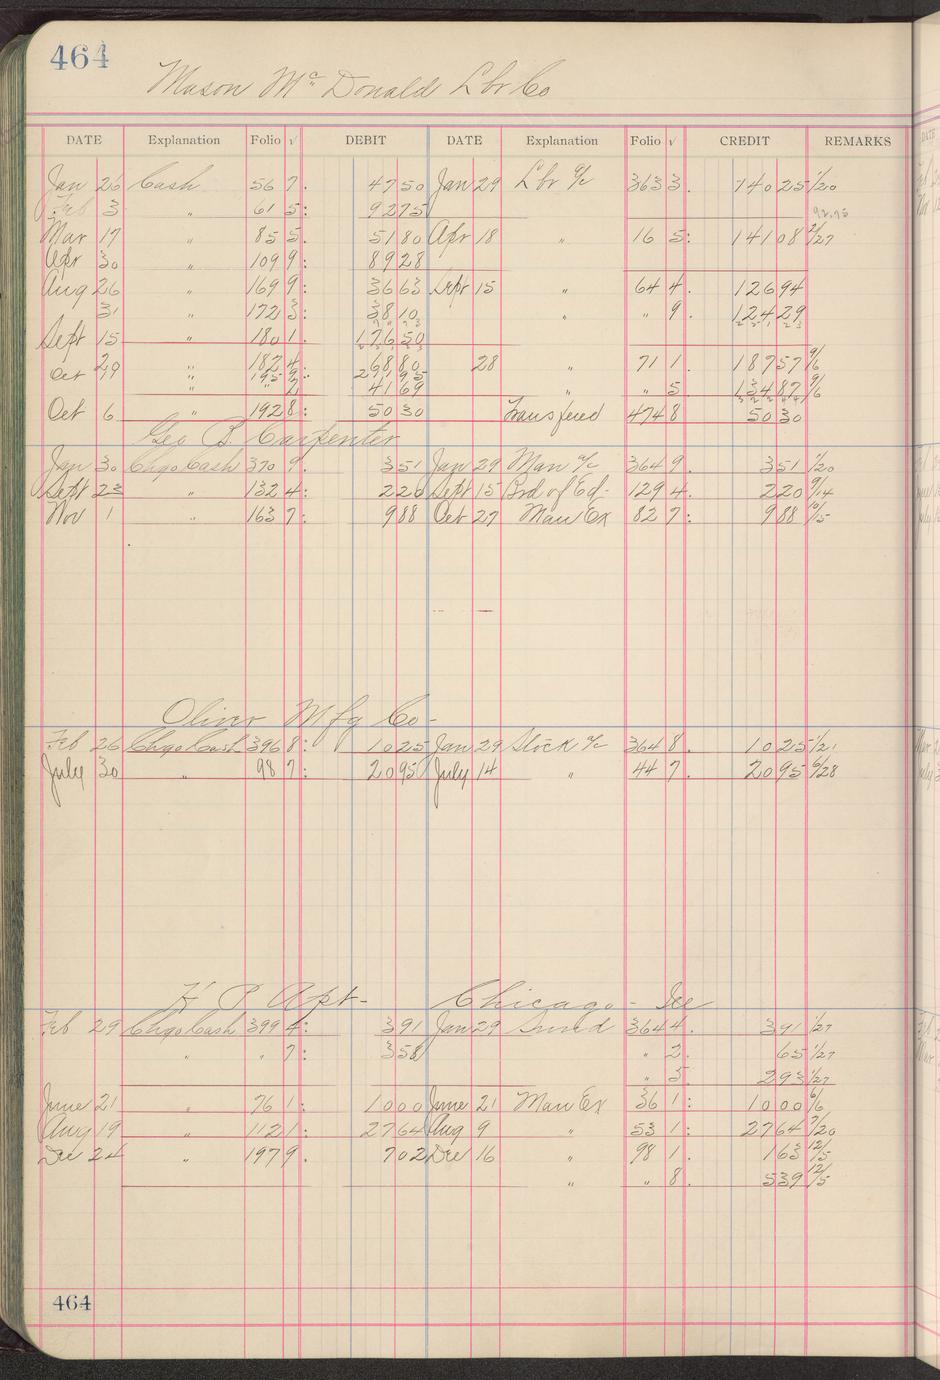 464
Mason McDonald Lbr Co
DATE Explanation Folio √ DEBIT DATE Explanation Folio √ CREDIT REMARKS
Jan 26 Cash 56 7. 47 50 Jan 29 Lbr a/c 363 3. 140 25 1/20
Feb 3 " 61 5: 92 75
92.75
Mar 17 " 85 5. 51 80 Apr 18 " 16 5: 141 08 2/27
Apr 30 " 109 9: 89 28
Aug 26 " 169 9: 36 63 Sept 15 " 64 4. 126 94
31 " 172 3: 38 10 " " 9. 124 29
Sept 15 " 180 1. 176 50
29 " 182 4. 68 80 28 " 71 1. 187 57 9/6
Oct " 195 9:
" 2 41 69 " " 5 134 87 9/6
Oct 6 " 192 8: 50 30 Transfered 474 8 50 30
Geo B. Carpenter
Jan 30 Chgo Cash 370 9. 3 51 Jan 29 Man a/c 364 9. 3 51 1/20
Sept 23 " 132 4: 2 20 Sept 15 Brd of Ed- 129 4. 2 20 9/14
Nov 1 " 163 7: 9 88 Oct 27 Man Ex 82 7: 9 88 10/15
Oliver Mfg Co-
Feb 26 Chgo Cash 396 8: 10 25 Jan 29 Stock a/c 364 8. 10 25 1/21
July 30 " 98 7: 20 95 July 14 " 44 7. 20 95 6/28
H P Apt- Chicago- Ill
Feb 29 Chgo Cash 399 4: 3 91 Jan 29 Sund 364 4. 3 91 1/27
" " 7: 3 58 " 2. 65 1/27
" 5. 2 93 1/27
June 21 " 76 1: 10 00 June 21 Man Ex 36 1: 10 00 6/6
Aug 19 " 112 1: 27 64 Aug 9 " 53 1: 27 64 7/20
Dec 24 " 197 9. 7 02 Dec 16 " 98 1. 1 63 12/5
" " 8. 5 39 12/5
464